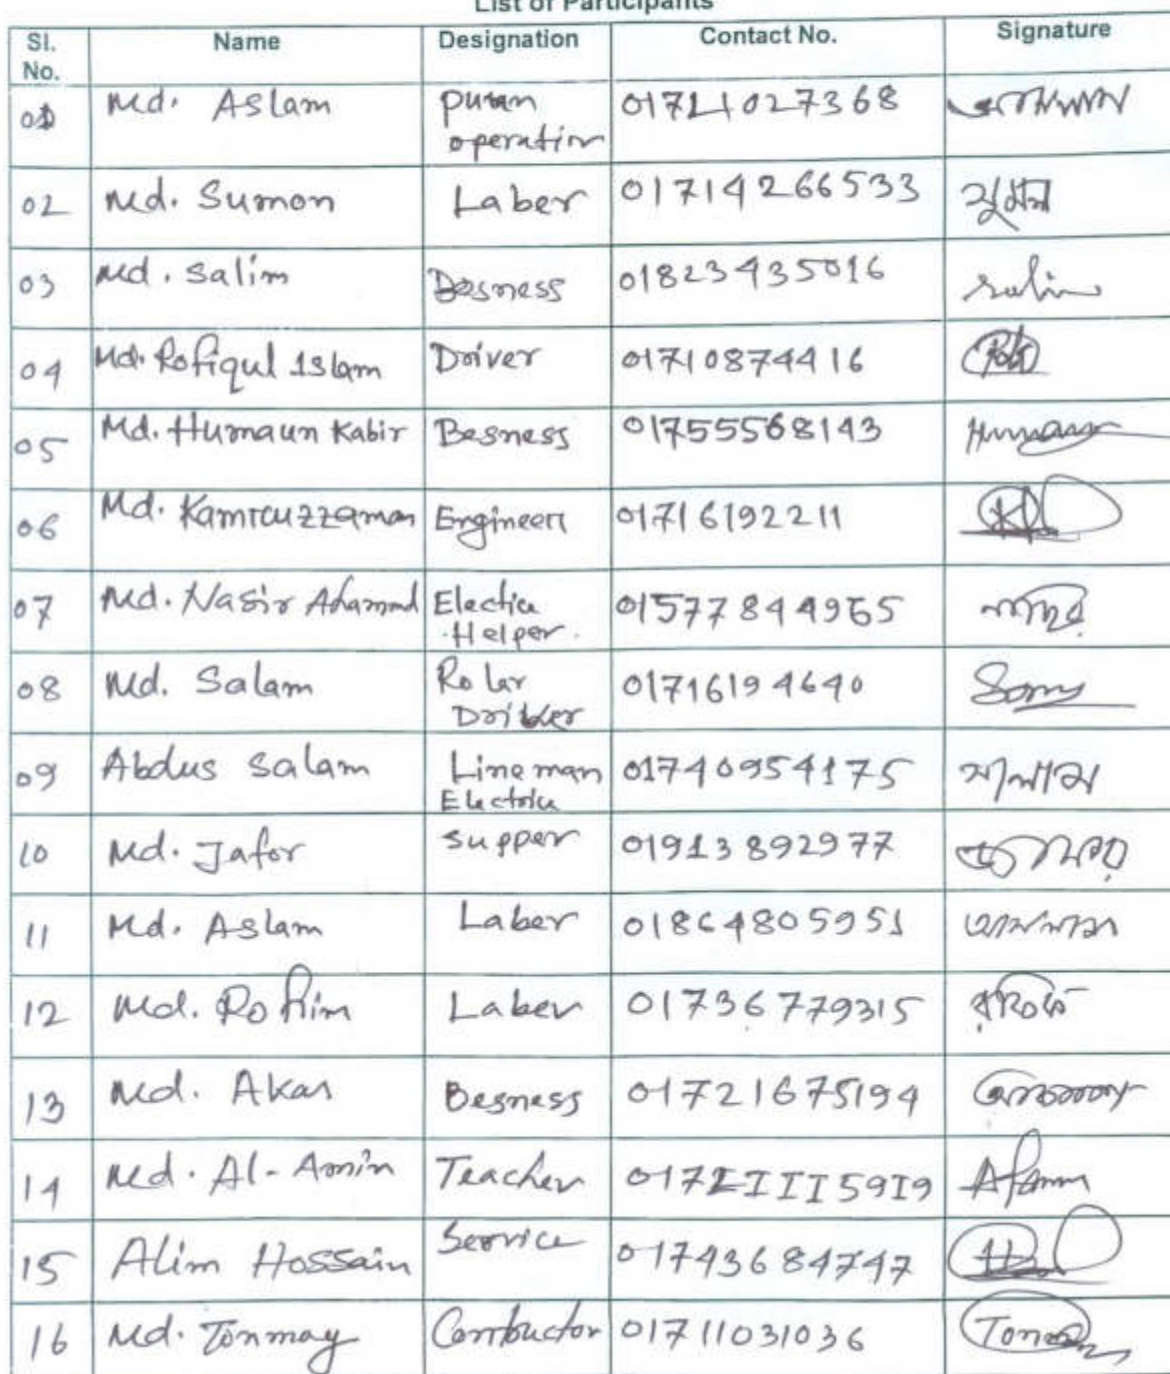 List of Participants
Sl. No. Name Designation Contact No. Signature
Md. Aslam operation
02 Md. Sumon Laber 01714266533 সুমন
03 Md. Salim Besness 01823435016 Salim
04 Md. Rofiqul Islam Driver 01710874416
05 Md. Humaun Kabir Besness 01755568143 Humaun
06 Md. Kamruzzaman Engineer 01716192211
07 Md. Nasir Ahammd Electice Helper. 01577844965 নাছির
08 Md. Salam Rolar Driber 01716194640
09 Abdus Salam Line man Electrice 01740954175 সালাম
10 Md. Jafor supper 01913892977 জাফর
11 Md. Aslam Laber 01864805951 আসলাম
12 Md. Rohim Laber 01736779315
13 Md. Akas Besness 01721675194
14 Md. Al-Amin Teacher 0172IIII5919
15 Alim Hossain Service 01743684747
16 Md. Tonmay 01711031036